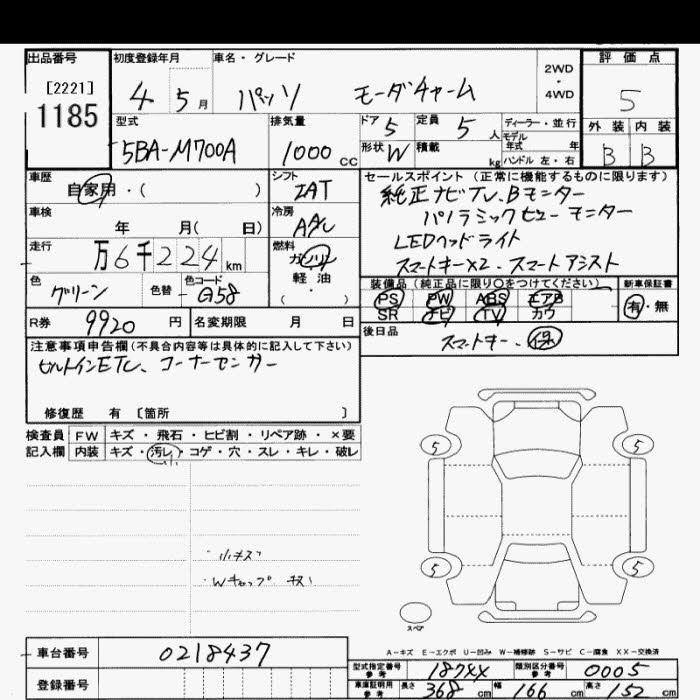 出品番号 初度登録年月 車名・グレード 2WD・4WD 評価点
[2221] 1185 4 5月 パッソ モーダチャーム 5
型式 排気量 ドア 5 定員 5人 ディーラー・並行 外装 内装
5BA-M700A 1000cc 形状 W 積載 kg モデル年式 年 ハンドル 左・右 B B
車歴 シフト セールスポイント (正常に機能するものに限ります)
自家用・( ) IAT 純正ナビTV、Bモニター
車検 冷房 パノラミックビューモニター
年 月( 日) AAC LEDヘッドライト
走行 燃料 スマートキーX2、スマートアシスト
万6千224km ガソリン・軽油・( )
色 色替 色コード 装備品 (純正品に限り○をつけてください) 新車保証書
グリーン G58 PS PW ABS エアB 有・無
SR ナビ TV カワ
R券 9920円 名変期限 月 日 後日品
スマートキー、保
注意事項申告欄(不具合内容等は具体的に記入して下さい)
ビルトインETC、コーナーセンサー
修復歴 有 [箇所 ]
検査員 FW キズ・飛石・ヒビ割・リペア跡・×要
記入欄 内装 キズ・汚レ・コゲ・穴・スレ・キレ・破レ
小
・小キズ
・Wキャップ キズ
5 5
5 5
スペア
A-キズ E-エクボ U-凹み W-補修跡 S-サビ C-腐食 XX-交換済
車台番号 0218437
型式指定番号 参考 18744 類別区分番号 参考 0005
登録番号
車庫証明用 参考 長さ 368 cm 幅 166 cm 高さ 152 cm